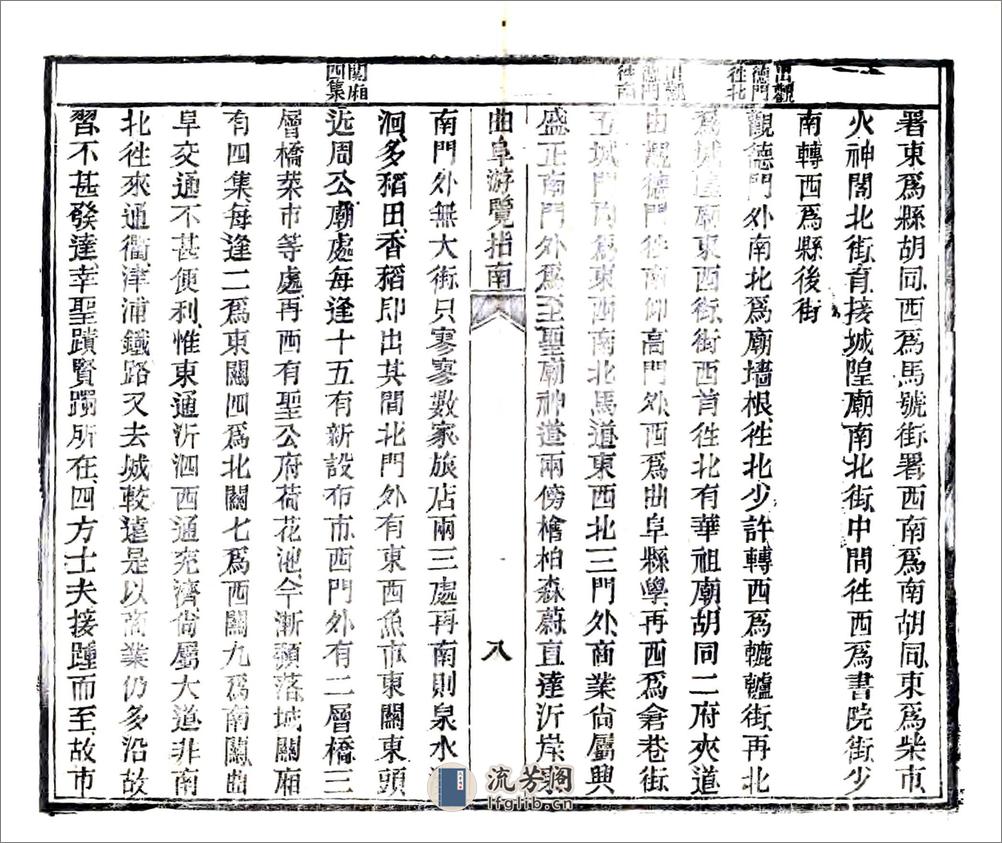 出觀德門往北
出觀德門往南
關廂四集
署東爲縣胡同西爲馬號街署西南爲南胡同東爲柴市
火神閣北街育接城隍廟南北街中間往西爲書院街少
南轉西爲縣後街
觀德門外南北爲廟墻根往北少許轉西爲轆轤街再北
爲城隍廟東西街街西首往北有華祖廟胡同二府夾道
由觀德門往南仰高門外西爲曲阜縣學再西爲倉巷街
五城門內爲東西南北馬道東西北三門外商業尙屬興
盛正南門外爲至聖廟神道兩傍檜柏森蔚直達沂岸
曲阜游覽指南
八
南門外無大街只寥寥數家旅店兩三處再南則泉水
洄多稻田香稻即出其間北門外有東西魚市東關東頭
近周公廟處每逢十五有新設布市西門外有二層橋三
層橋菜市等處再西有聖公府荷花池今漸頹落城關廂
有四集每逢二爲東關四爲北關七爲西關九爲南關曲
阜交通不甚便利惟東通沂泗西通兖濟尙屬大道非南
北往來通衢津浦鐵路又去城較遠是以商業仍多沿故
習不甚發達幸聖蹟賢躅所在四方士夫接踵而至故市
流芳阁
lfglib.cn